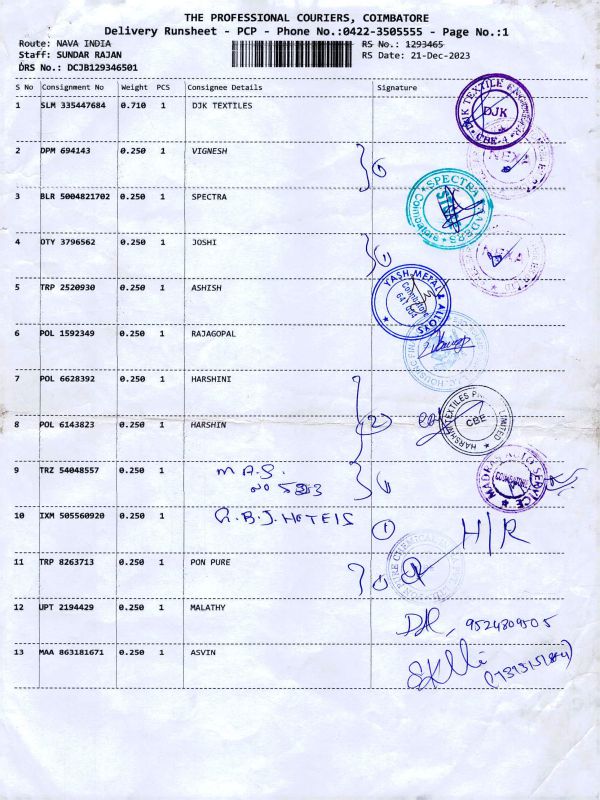 THE PROFESSIONAL COURIERS, COIMBATORE
Delivery Runsheet - PCP - Phone No.:0422-3505555 - Page No.:1
Route: NAVA INDIA RS No.: 1293465
Staff: SUNDAR RAJAN RS Date: 21-Dec-2023
DRS No.: DCJB129346501
S No Consignment No Weight PCS Consignee Details Signature
1 SLM 335447684 0.710 1 DJK TEXTILES DJK
2 DPM 694143 0.250 1 VIGNESH
3 BLR 5004821702 0.250 1 SPECTRA SPECTRA
4 OTY 3796562 0.250 1 JOSHI 1
5 TRP 2520930 0.250 1 ASHISH YASH METAL & ALLOYS Coimbatore
6 POL 1592349 0.250 1 RAJAGOPAL
7 POL 6628392 0.250 1 HARSHINI
8 POL 6143823 0.250 1 HARSHIN 2 HARSHINI TEXTILES LIMITED CBE
9 TRZ 54048557 0.250 1 M.A.S. MADRAS AUTO SERVICE
NO
10 IXM 505560920 0.250 1 HOTELS 1 H/R
11 TRP 8263713 0.250 1 PON PURE 1
12 UPT 2194429 0.250 1 MALATHY 9524809505
13 MAA 863181671 0.250 1 ASVIN